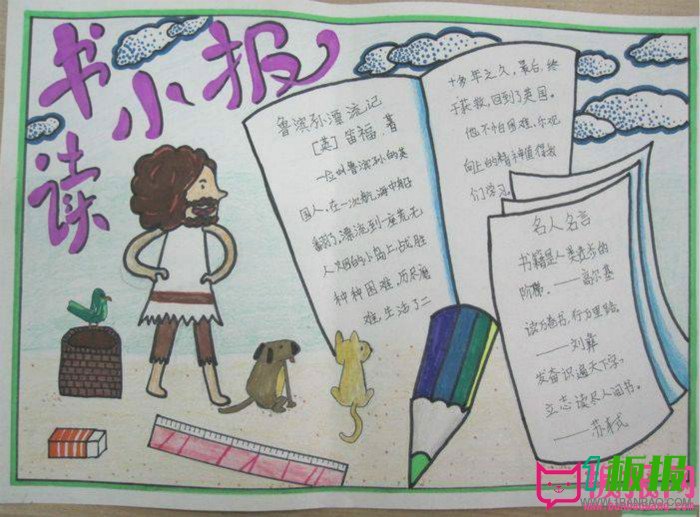 读书小报
鲁滨孙漂流记
[英]笛福 著
一位叫鲁滨孙的英
国人,在一次航海中船
翻了,漂流到一座荒无
人烟的小岛上,战胜
种种困难,历尽磨
难,生活了二
十多年之久,最后,终
于获救,回到了英国。
他不怕困难,乐观
向上的精神值得我
们学习。
名人名言
书籍是人类进步的
阶梯。——高尔基
读万卷书,行万里路。
——刘彝
发奋识遍天下字,
立志读尽人间书。
——苏东式
WWW.1BANBAO.COM